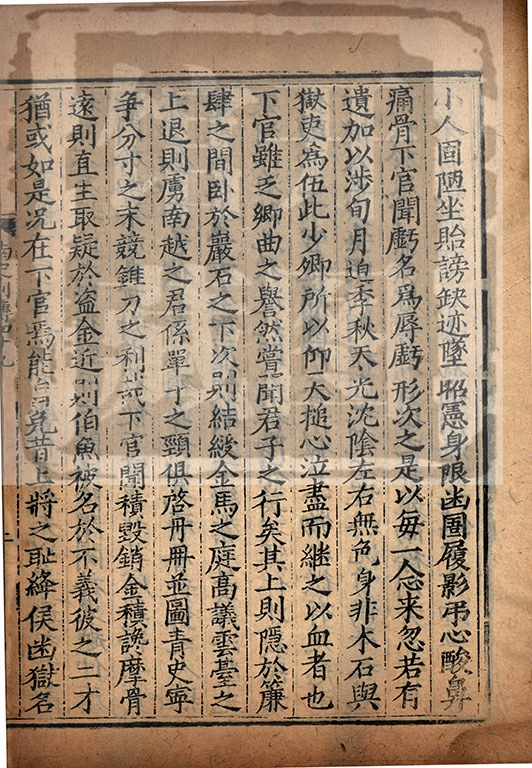 小人固陋坐貽謗缺迹墜昭憲身限幽圄履影弔心酸鼻
痛骨下官聞虧名爲辱虧形次之是以每一念来忽若有
遺加以涉旬月迫季秋天光沈陰左右無色身非木石與
獄吏爲伍此少卿所以仰天搥心泣盡而繼之以血者也
下官雖乏鄉曲之譽然嘗聞君子之行矣其上則隱於簾
肆之間卧於巖石之下次則結綬金馬之庭高議雲臺之
上退則虜南越之君係單于之頸俱啓丹冊並圖青史寧
爭分寸之末競錐刀之利哉下官聞積毀銷金積讒摩骨
遠則直生取疑於盜金近則伯魚被名於不義彼之二才
猶或如是况在下官焉能自免昔上將之耻絳侯幽獄名
南史列傳四十九